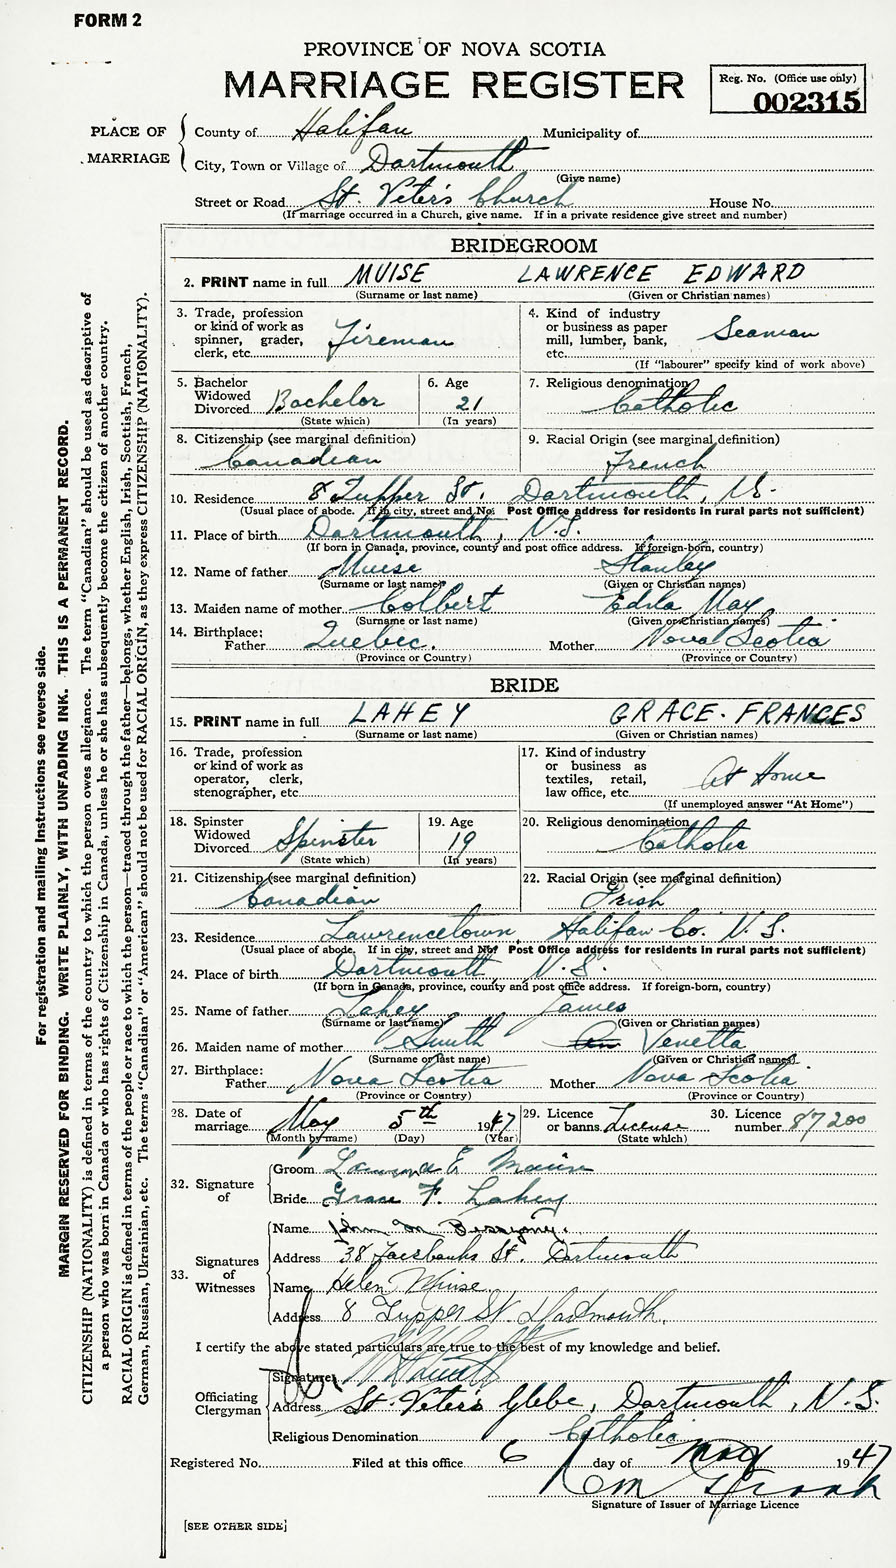 FORM 2
PROVINCE OF NOVA SCOTIA
MARRIAGE REGISTER
Reg. No. (Office use only)
002315
PLACE OF MARRIAGE
County of Halifax Municipality of
City, Town or Village of Dartmouth
(Give name)
Street or Road St. Peter's Church House No.
(If marriage occurred in a Church, give name. If in a private residence give street and number)
BRIDEGROOM
2. PRINT name in full MUISE LAWRENCE EDWARD
(Surname or last name) (Given or Christian names)
3. Trade, profession or kind of work as spinner, grader, clerk, etc. Fireman
4. Kind of industry or business as paper mill, lumber, bank, etc. Seaman
(If "labourer" specify kind of work above)
5. Bachelor Widowed Divorced Bachelor
(State which)
6. Age 21
(In years)
7. Religious denomination Catholic
8. Citizenship (see marginal definition) Canadian
9. Racial Origin (see marginal definition) French
10. Residence 8 Tupper St. Dartmouth, N.S.
(Usual place of abode. If in city, street and No. Post Office address for residents in rural parts not sufficient)
11. Place of birth Dartmouth, N.S.
(If born in Canada, province, county and post office address. If foreign-born, country)
12. Name of father Muise Stanley
(Surname or last name) (Given or Christian names)
13. Maiden name of mother Colbert Edla May
(Surname or last name) (Given or Christian names)
14. Birthplace:
Father Quebec. Mother Nova Scotia
(Province or Country) (Province or Country)
BRIDE
15. PRINT name in full LAHEY GRACE. FRANCES
(Surname or last name) (Given or Christian names)
16. Trade, profession or kind of work as operator, clerk, stenographer, etc.
17. Kind of industry or business as textiles, retail, law office, etc. At Home
(If unemployed answer "At Home")
18. Spinster Widowed Divorced Spinster
(State which)
19. Age 19
(In years)
20. Religious denomination Catholic
21. Citizenship (see marginal definition) Canadian
22. Racial Origin (see marginal definition) Irish
23. Residence Lawrencetown, Halifax Co. N.S.
(Usual place of abode. If in city, street and No. Post Office address for residents in rural parts not sufficient)
24. Place of birth Dartmouth N.S.
(If born in Canada, province, county and post office address. If foreign-born, country)
25. Name of father Lahey James
(Surname or last name) (Given or Christian names)
26. Maiden name of mother Smith Venetta
(Surname or last name) (Given or Christian names)
27. Birthplace:
Father Nova Scotia Mother Nova Scotia
(Province or Country) (Province or Country)
28. Date of marriage May 5th 1947
(Month by name) (Day) (Year)
29. Licence or banns License
(State which)
30. Licence number 87200
32. Signature of
Groom Lawrence E. Muise
Bride Grace F. Lahey
33. Signatures of Witnesses
Name John M
Address 38 Fairbanks St. Dartmouth
Name Helen Muise
Address 8 Tupper St Dartmouth.
I certify the above stated particulars are true to the best of my knowledge and belief.
Officiating Clergyman
Signature
Address St. Peter's Glebe, Dartmouth, N.S.
Religious Denomination Catholic
Registered No. Filed at this office 6 day of May 1947
Signature of Issuer of Marriage Licence
[SEE OTHER SIDE]
For registration and mailing instructions see reverse side.
MARGIN RESERVED FOR BINDING. WRITE PLAINLY, WITH UNFADING INK. THIS IS A PERMANENT RECORD.
CITIZENSHIP (NATIONALITY) is defined in terms of the country to which the person owes allegiance. The term "Canadian" should be used as descriptive of
a person who was born in Canada or who has rights of Citizenship in Canada, unless he or she has subsequently become the citizen of another country.
RACIAL ORIGIN is defined in terms of the people or race to which the person—traced through the father—belongs, whether English, Irish, Scottish, French,
German, Russian, Ukrainian, etc. The terms "Canadian" or "American" should not be used for RACIAL ORIGIN, as they express CITIZENSHIP (NATIONALITY).